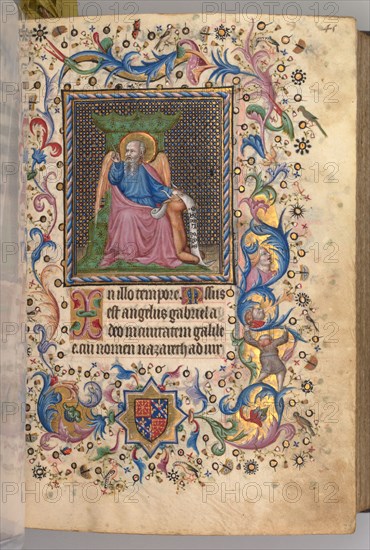 In illo tempore. Missus
est angelus gabriel a
deo in civitatem galile
e. cui nomen nazareth ad vir
PHOTO12